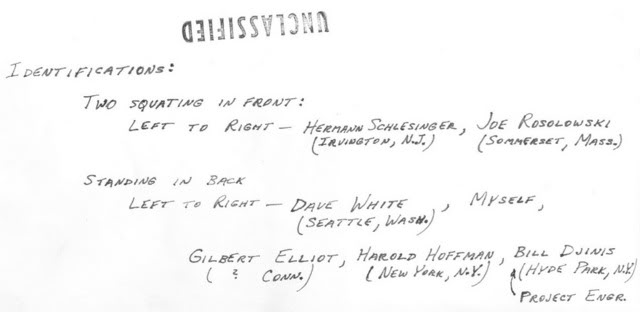 UNCLASSIFIED
IDENTIFICATIONS:
TWO SQUATING IN FRONT:
LEFT TO RIGHT — HERMANN SCHLESINGER, JOE ROSOLOWSKI
(IRVINGTON, N.J.) (SOMMERSET, MASS.)
STANDING IN BACK
LEFT TO RIGHT — DAVE WHITE, MYSELF,
(SEATTLE, WASH.)
GILBERT ELLIOT, HAROLD HOFFMAN, BILL DJINIS
( ? CONN.) (NEW YORK, N.Y.) (HYDE PARK, N.Y.)
PROJECT ENGR.